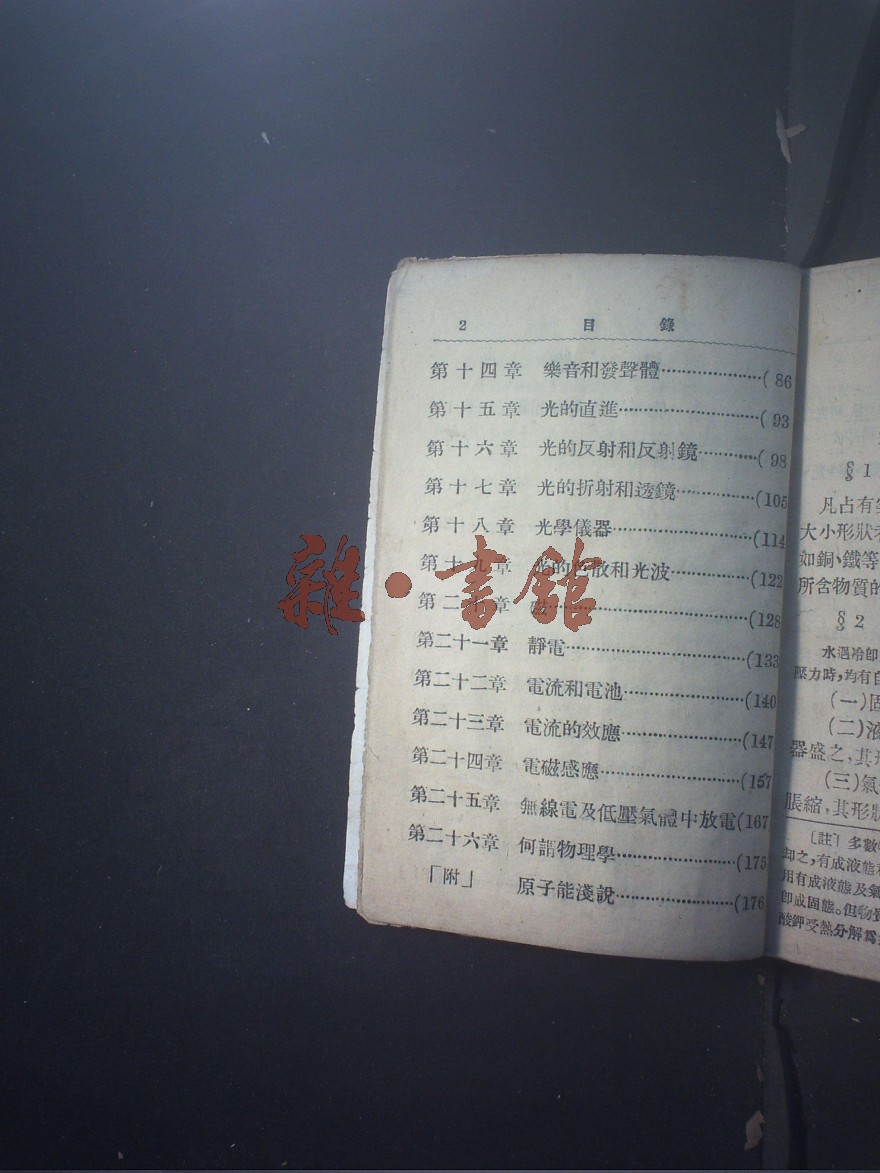 2 目錄
第十四章 樂音和發聲體…………………( 86
第十五章 光的直進…………………………( 93
第十六章 光的反射和反射鏡…………( 98
第十七章 光的折射和透鏡……………(105
第十八章 光學儀器…………………………(114
第十九章 光的色散和光波……………(122
第二十章 磁……………………………………(128
第二十一章 靜電…………………………………(133
第二十二章 電流和電池……………………(140
第二十三章 電流的效應……………………(147
第二十四章 電磁感應…………………………(157
第二十五章 無線電及低壓氣體中放電(167
第二十六章 何謂物理學……………………(175
「附」 原子能淺說……………………(176
雜·書館
§1
凡占有
大小形狀
如銅、鐵等
所含物質的
§2
水遇冷卽
壓力時,均有自
(一)固
(二)液
器盛之,其形
(三)氣
脹縮,其形狀
〔註〕多數
却之,有成液態
用有成液態及氣
卽成固態。但物質
酸鉀受熱分解爲